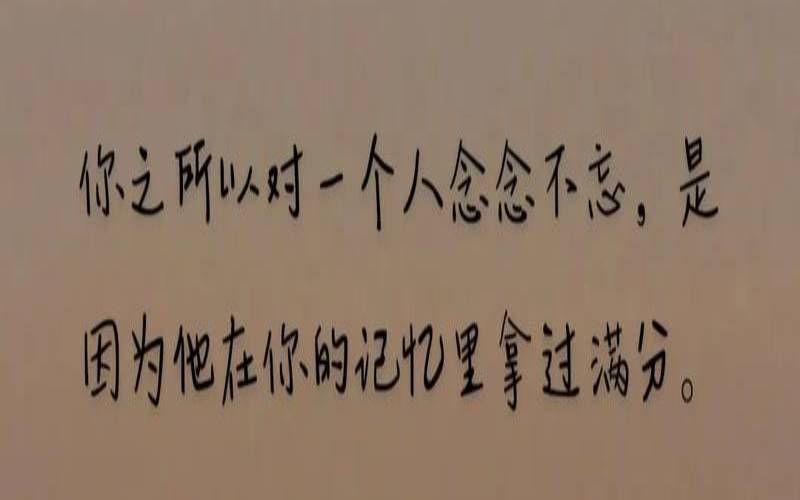 你之所以对一个人念念不忘，是
因为他在你的记忆里拿过满分。